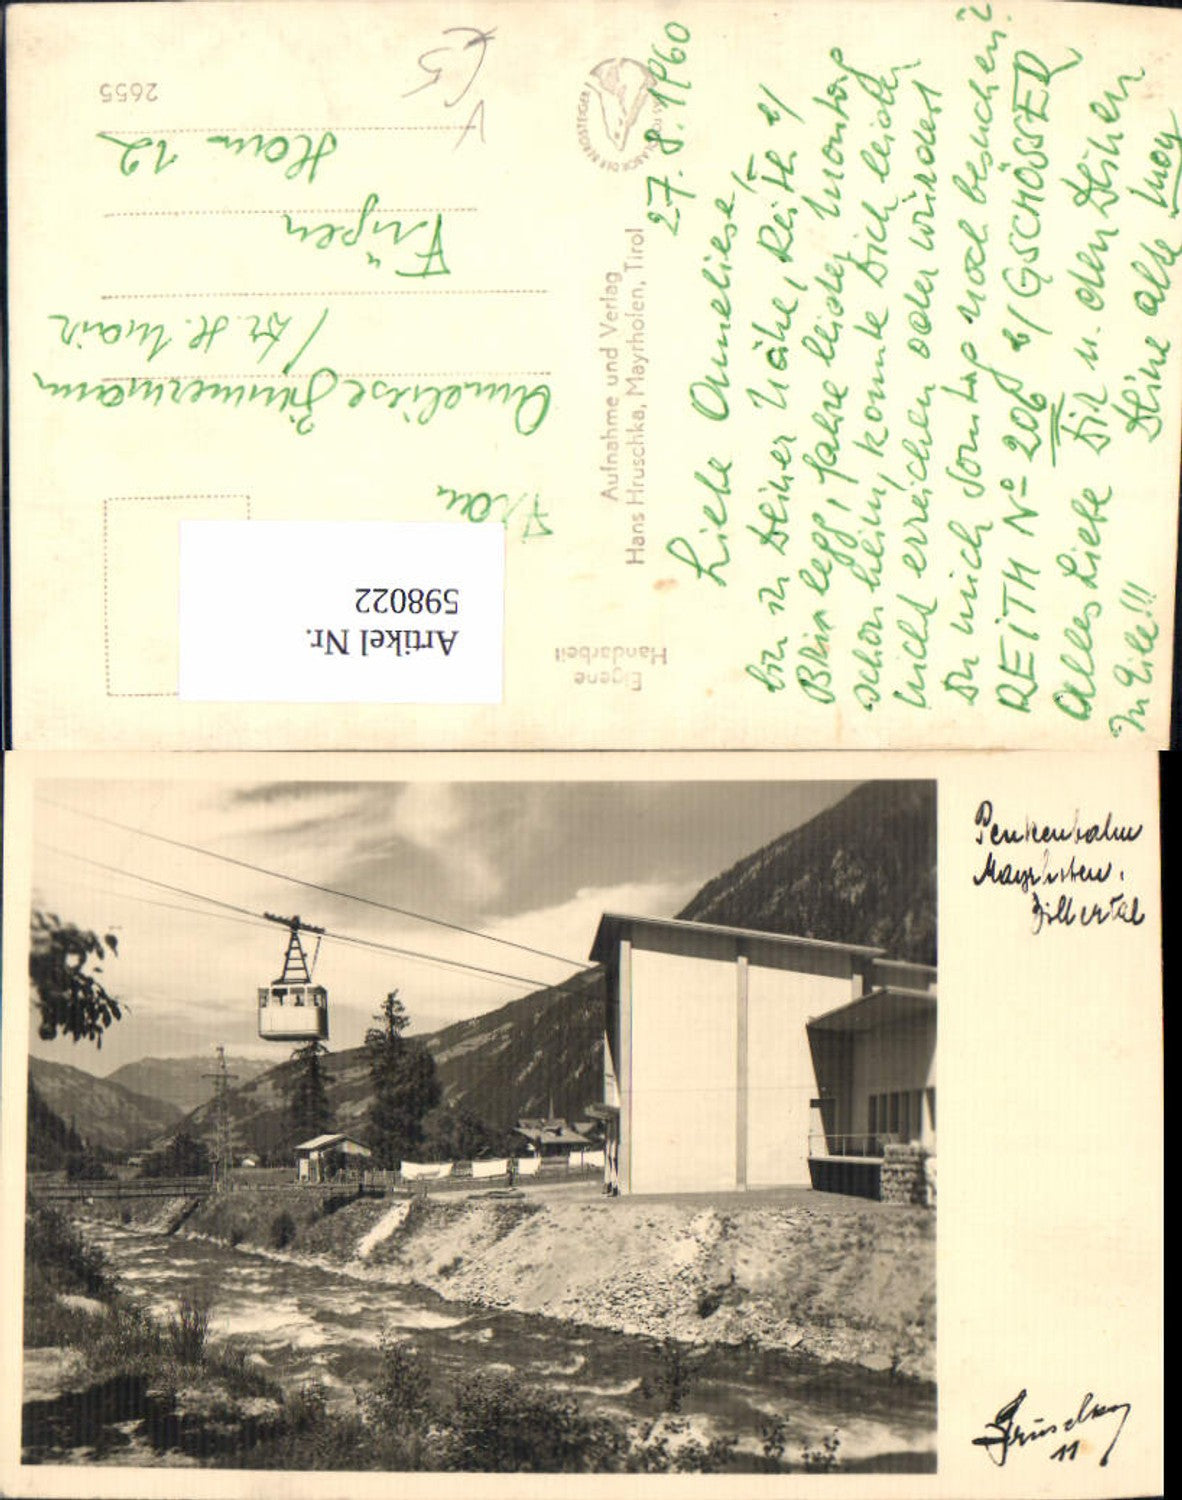 2655
Frau
Anneliese Zimmermann
/ Dr. H. Mair
Fügen
Haus 12
Artikel Nr.
598022
Eigene
Handarbeit
Aufnahme und Verlag
Hans Hruschka, Mayrhofen, Tirol
27. 8. 1960
Liebe Anneliese,
bin in Deiner Nähe, Reith b/
Brixlegg, fahre leider Montag
schon heim, konnte Dich leider
nicht erreichen oder würdest
Du mich Sonntag noch besuchen?
REITH No 206 b/ GSCHÖSSER
Alles Liebe Dir u. den Deinen
In Eile!!! Deine alte
Penkenbahn
Mayrhofen,
Zillertal
Hruschka
11